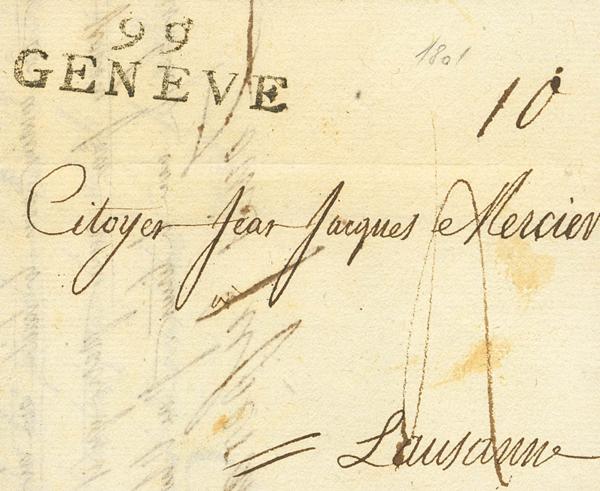 99
GENEVE
1801
10
Citoyen Jean Jacques Mercier
a
Lausanne